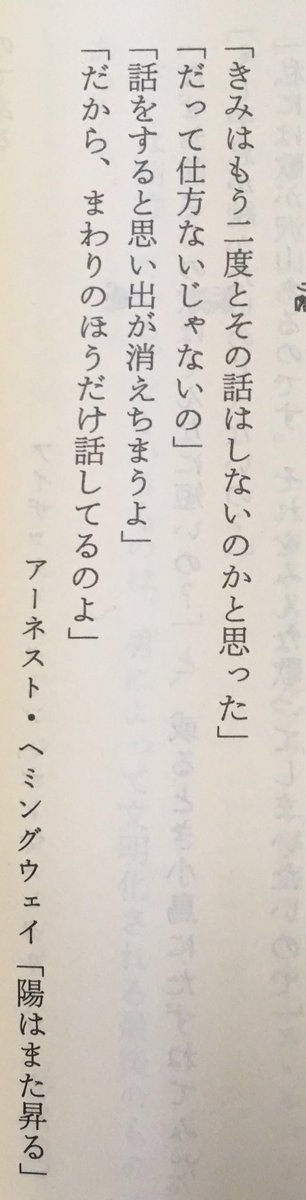 「きみはもう二度とその話はしないのかと思った」
「だって仕方ないじゃないの」
「話をすると思い出が消えちまうよ」
「だから、まわりのほうだけ話してるのよ」
アーネスト・ヘミングウェイ「陽はまた昇る」